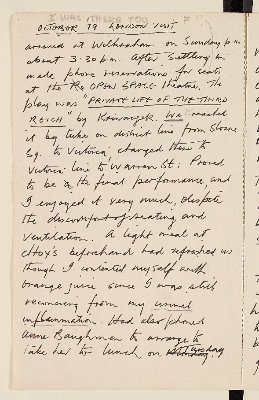 I WAS THERE TOO
OCTOBER 79 LONDON VISIT
arrived at Wilbraham on Sunday p.m.
about 3.30 pm. After settling in
made phone reservations for seats
at the OPEN SPACE theatre. The
play was "PRIVATE LIFE OF THE THIRD
REICH" by We reached
it by tube on district line from Sloane
Sq. to Victoria, changed there to
Victoria line to Warren St: Proved
to be the final performance, and
I enjoyed it very much, despite
the discomfort of seating and
ventilation. A light meal at
beforehand had refreshed us
though I contented myself with
orange juice since I was still
recovering from my
inflammation. Had also phoned
Anne Baughman to arrange to
take her to lunch, on Tuesday